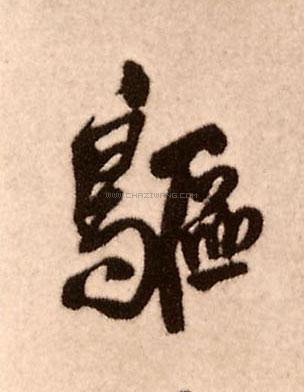 驅
WWW.CHAZIWANG.COM